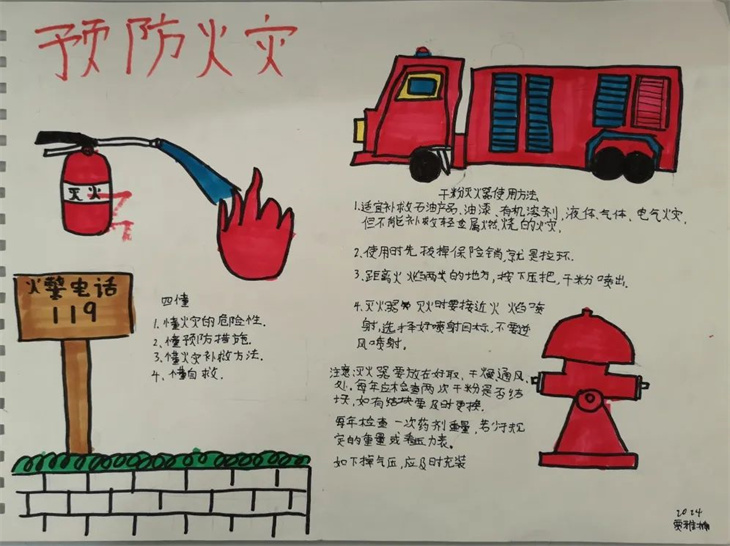 预防火灾
灭火
火警电话
119
四懂
1.懂火灾的危险性.
2.懂预防措施.
3.懂火灾补救方法.
4.懂自救.
干粉灭火器使用方法
1.适宜补救石油产品,油漆.有机溶剂,液体.气体.电气火灾.
但不能补救轻金属燃烧的火灾.
2.使用时先拔掉保险销就是拉环.
3.距离火焰两米的地方,按下压把,干粉喷出.
4.灭火器 灭火时要接近火焰喷
射,选择好喷射目标,不要逆
风喷射.
注意:灭火器要放在好取.干燥.通风
处.每年应检查两次干粉是否结
块,如有结块要及时更换.
每年检查一次药剂重量,若少于规
定的重量或看压力表.
如下掉气压,应及时充装
2024
贾雅